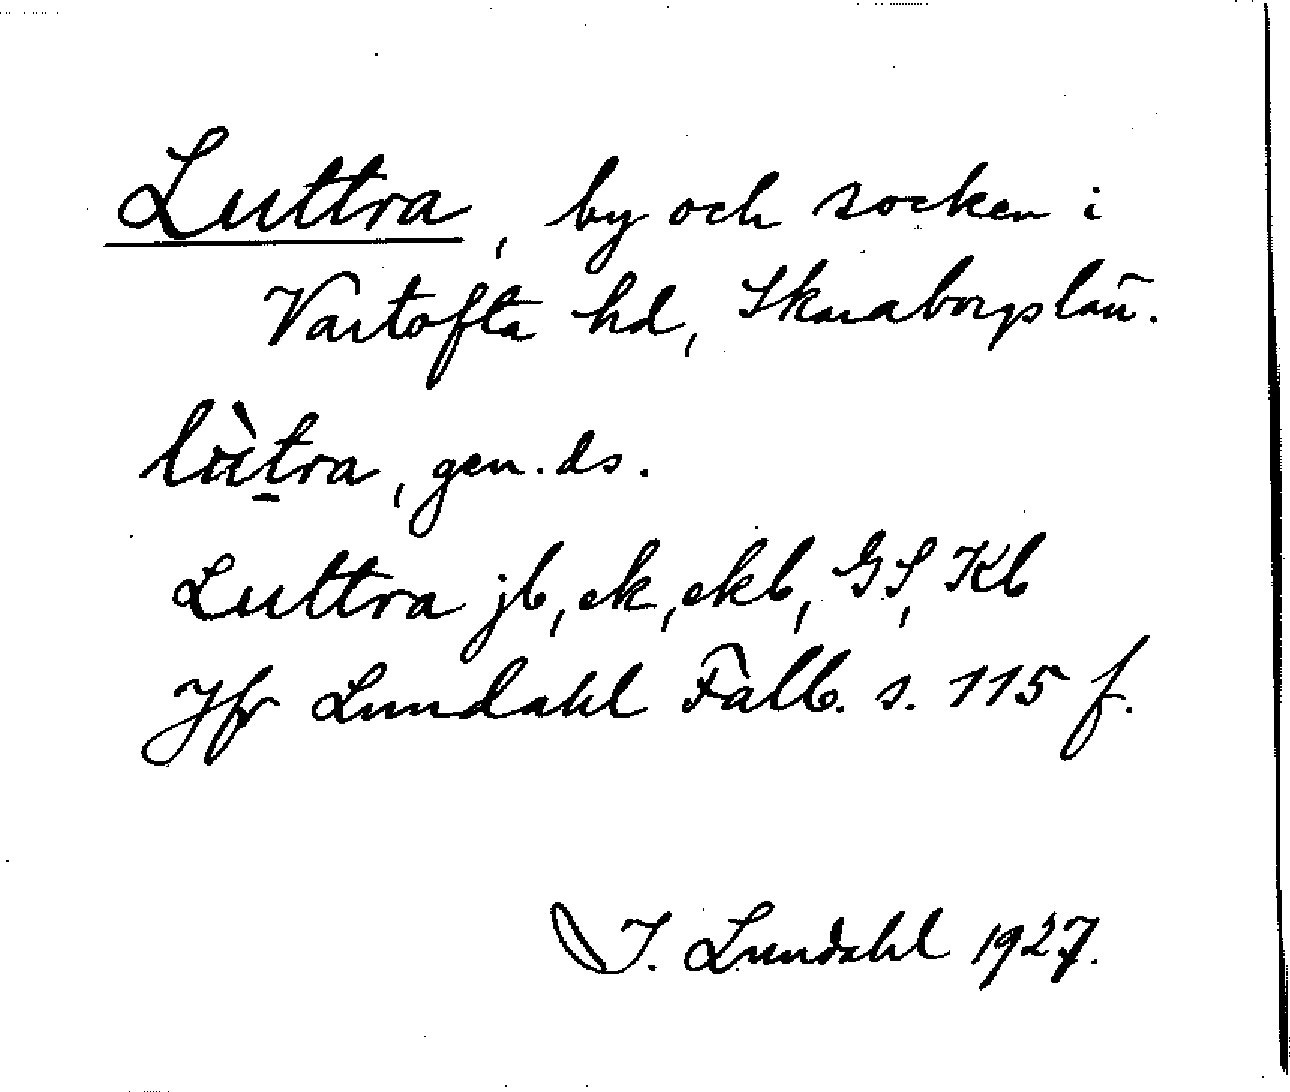 Luttra, by och socken i
Vartofta hd, Skaraborgs län.
lùt̠ra, gen. ds.
Luttra jb, ek, ekb, GS, Kb
Jfr Lundahl Falb. s. 115 f.
I. Lundahl 1927.